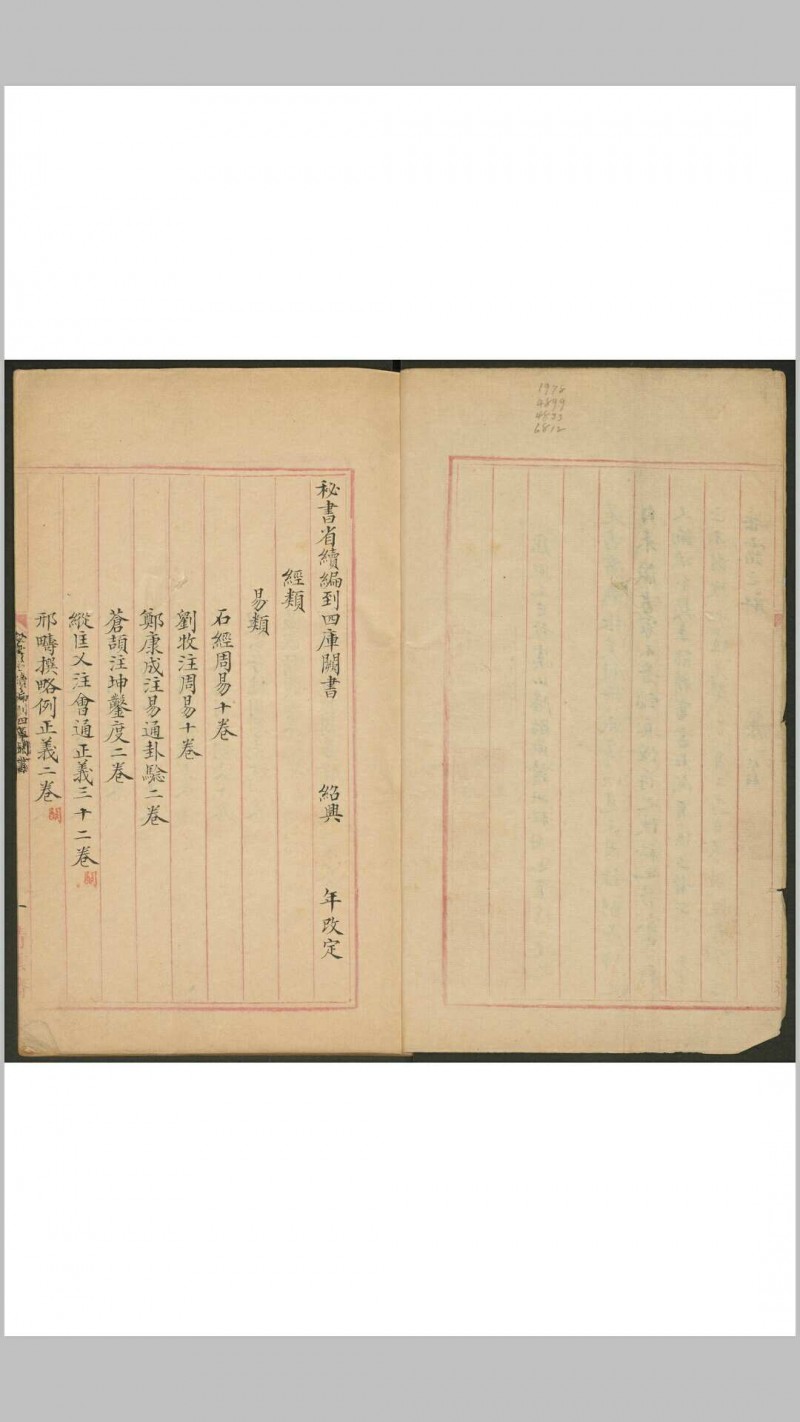 1978
4899
4833
6812
秘書省續編到四庫闕書 紹興 年改定
經類
易類
石經周易十卷
劉牧注周易十卷
鄭康成注易通卦驗二卷
蒼頡注坤鑿度二卷
縱匡乂注會通正義三十二卷 闕
邢疇撰略例正義二卷 闕